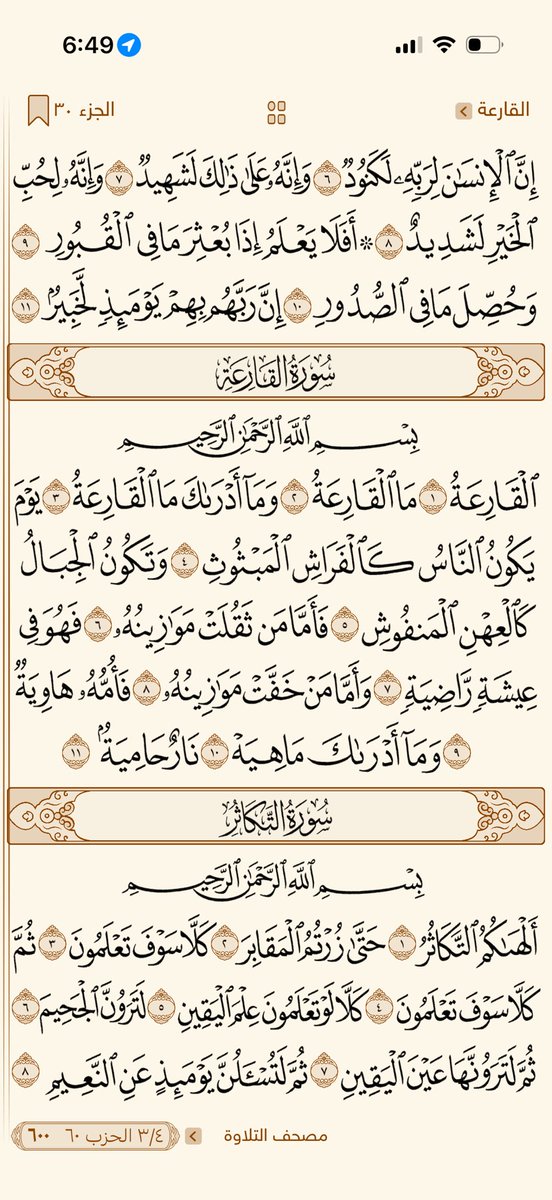 6:49
القارعة
الجزء ٣٠
إِنَّ ٱلْإِنسَٰنَ لِرَبِّهِۦ لَكَنُودٌ ٦ وَإِنَّهُۥ عَلَىٰ ذَٰلِكَ لَشَهِيدٌ ٧ وَإِنَّهُۥ لِحُبِّ
ٱلْخَيْرِ لَشَدِيدٌ ٨ ۞ أَفَلَا يَعْلَمُ إِذَا بُعْثِرَ مَا فِى ٱلْقُبُورِ ٩
وَحُصِّلَ مَا فِى ٱلصُّدُورِ ١٠ إِنَّ رَبَّهُم بِهِمْ يَوْمَئِذٍ لَّخَبِيرٌۢ ١١
سُورَةُ القَارِعَةِ
بِسْمِ ٱللَّهِ ٱلرَّحْمَٰنِ ٱلرَّحِيمِ
ٱلْقَارِعَةُ ١ مَا ٱلْقَارِعَةُ ٢ وَمَآ أَدْرَىٰكَ مَا ٱلْقَارِعَةُ ٣ يَوْمَ
يَكُونُ ٱلنَّاسُ كَٱلْفَرَاشِ ٱلْمَبْثُوثِ ٤ وَتَكُونُ ٱلْجِبَالُ
كَٱلْعِهْنِ ٱلْمَنفُوشِ ٥ فَأَمَّا مَن ثَقُلَتْ مَوَٰزِينُهُۥ ٦ فَهُوَ فِى
عِيشَةٍ رَّاضِيَةٍ ٧ وَأَمَّا مَنْ خَفَّتْ مَوَٰزِينُهُۥ ٨ فَأُمُّهُۥ هَاوِيَةٌ
٩ وَمَآ أَدْرَىٰكَ مَا هِيَهْ ١٠ نَارٌ حَامِيَةٌۢ ١١
سُورَةُ التَّكَاثُرِ
بِسْمِ ٱللَّهِ ٱلرَّحْمَٰنِ ٱلرَّحِيمِ
أَلْهَىٰكُمُ ٱلتَّكَاثُرُ ١ حَتَّىٰ زُرْتُمُ ٱلْمَقَابِرَ ٢ كَلَّا سَوْفَ تَعْلَمُونَ ٣ ثُمَّ
كَلَّا سَوْفَ تَعْلَمُونَ ٤ كَلَّا لَوْ تَعْلَمُونَ عِلْمَ ٱلْيَقِينِ ٥ لَتَرَوُنَّ ٱلْجَحِيمَ ٦
ثُمَّ لَتَرَوُنَّهَا عَيْنَ ٱلْيَقِينِ ٧ ثُمَّ لَتُسْـَٔلُنَّ يَوْمَئِذٍ عَنِ ٱلنَّعِيمِ ٨
مصحف التلاوة
٣/٤ الحزب ٦٠
٦٠٠